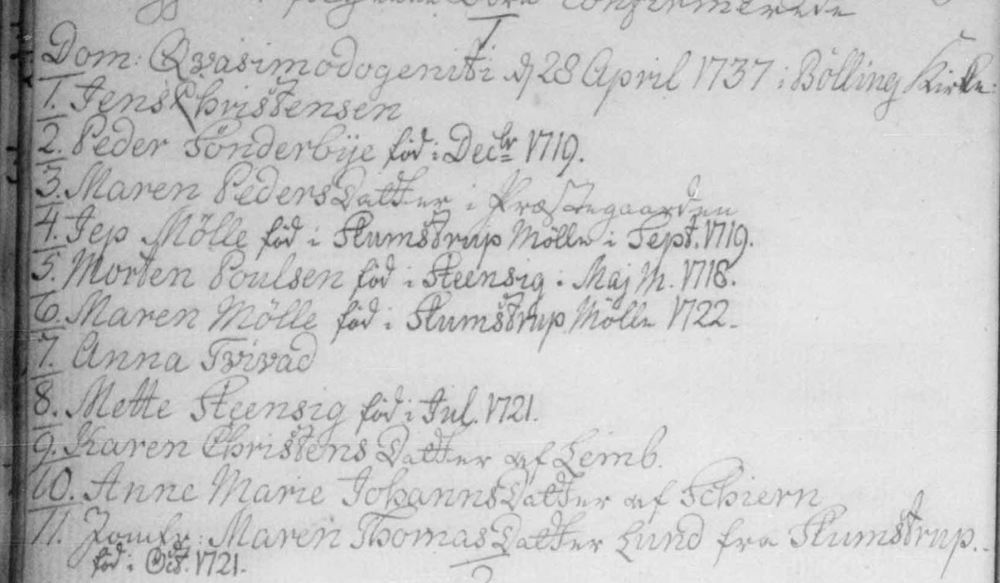 følgende Børn Confirmerede
I
Dom: Qvasimodogeniti d 28 April 1737 i Bölling Kirke:
1. Jens Christensen
2. Peder Sönderbÿe föd i Decbr 1719.
3. Maren PedersDatter i Præstegaarden
4. Jep Mölle föd i Slumstrup Mölle i Sept. 1719.
5. Morten Poulsen föd i Steensig i Maj M. 1718.
6. Maren Mölle föd i Slumstrup Mölle 1722.
7. Anna Tvivad
8. Mette Steensig föd i Jul. 1721.
9. Karen ChristensDatter af Lemb.
10. Anne Marie JohannsDatter af Schiern
11. Jomfr: Maren ThomasDatter Lund fra Slumstrup.
föd i Oct. 1721.
2